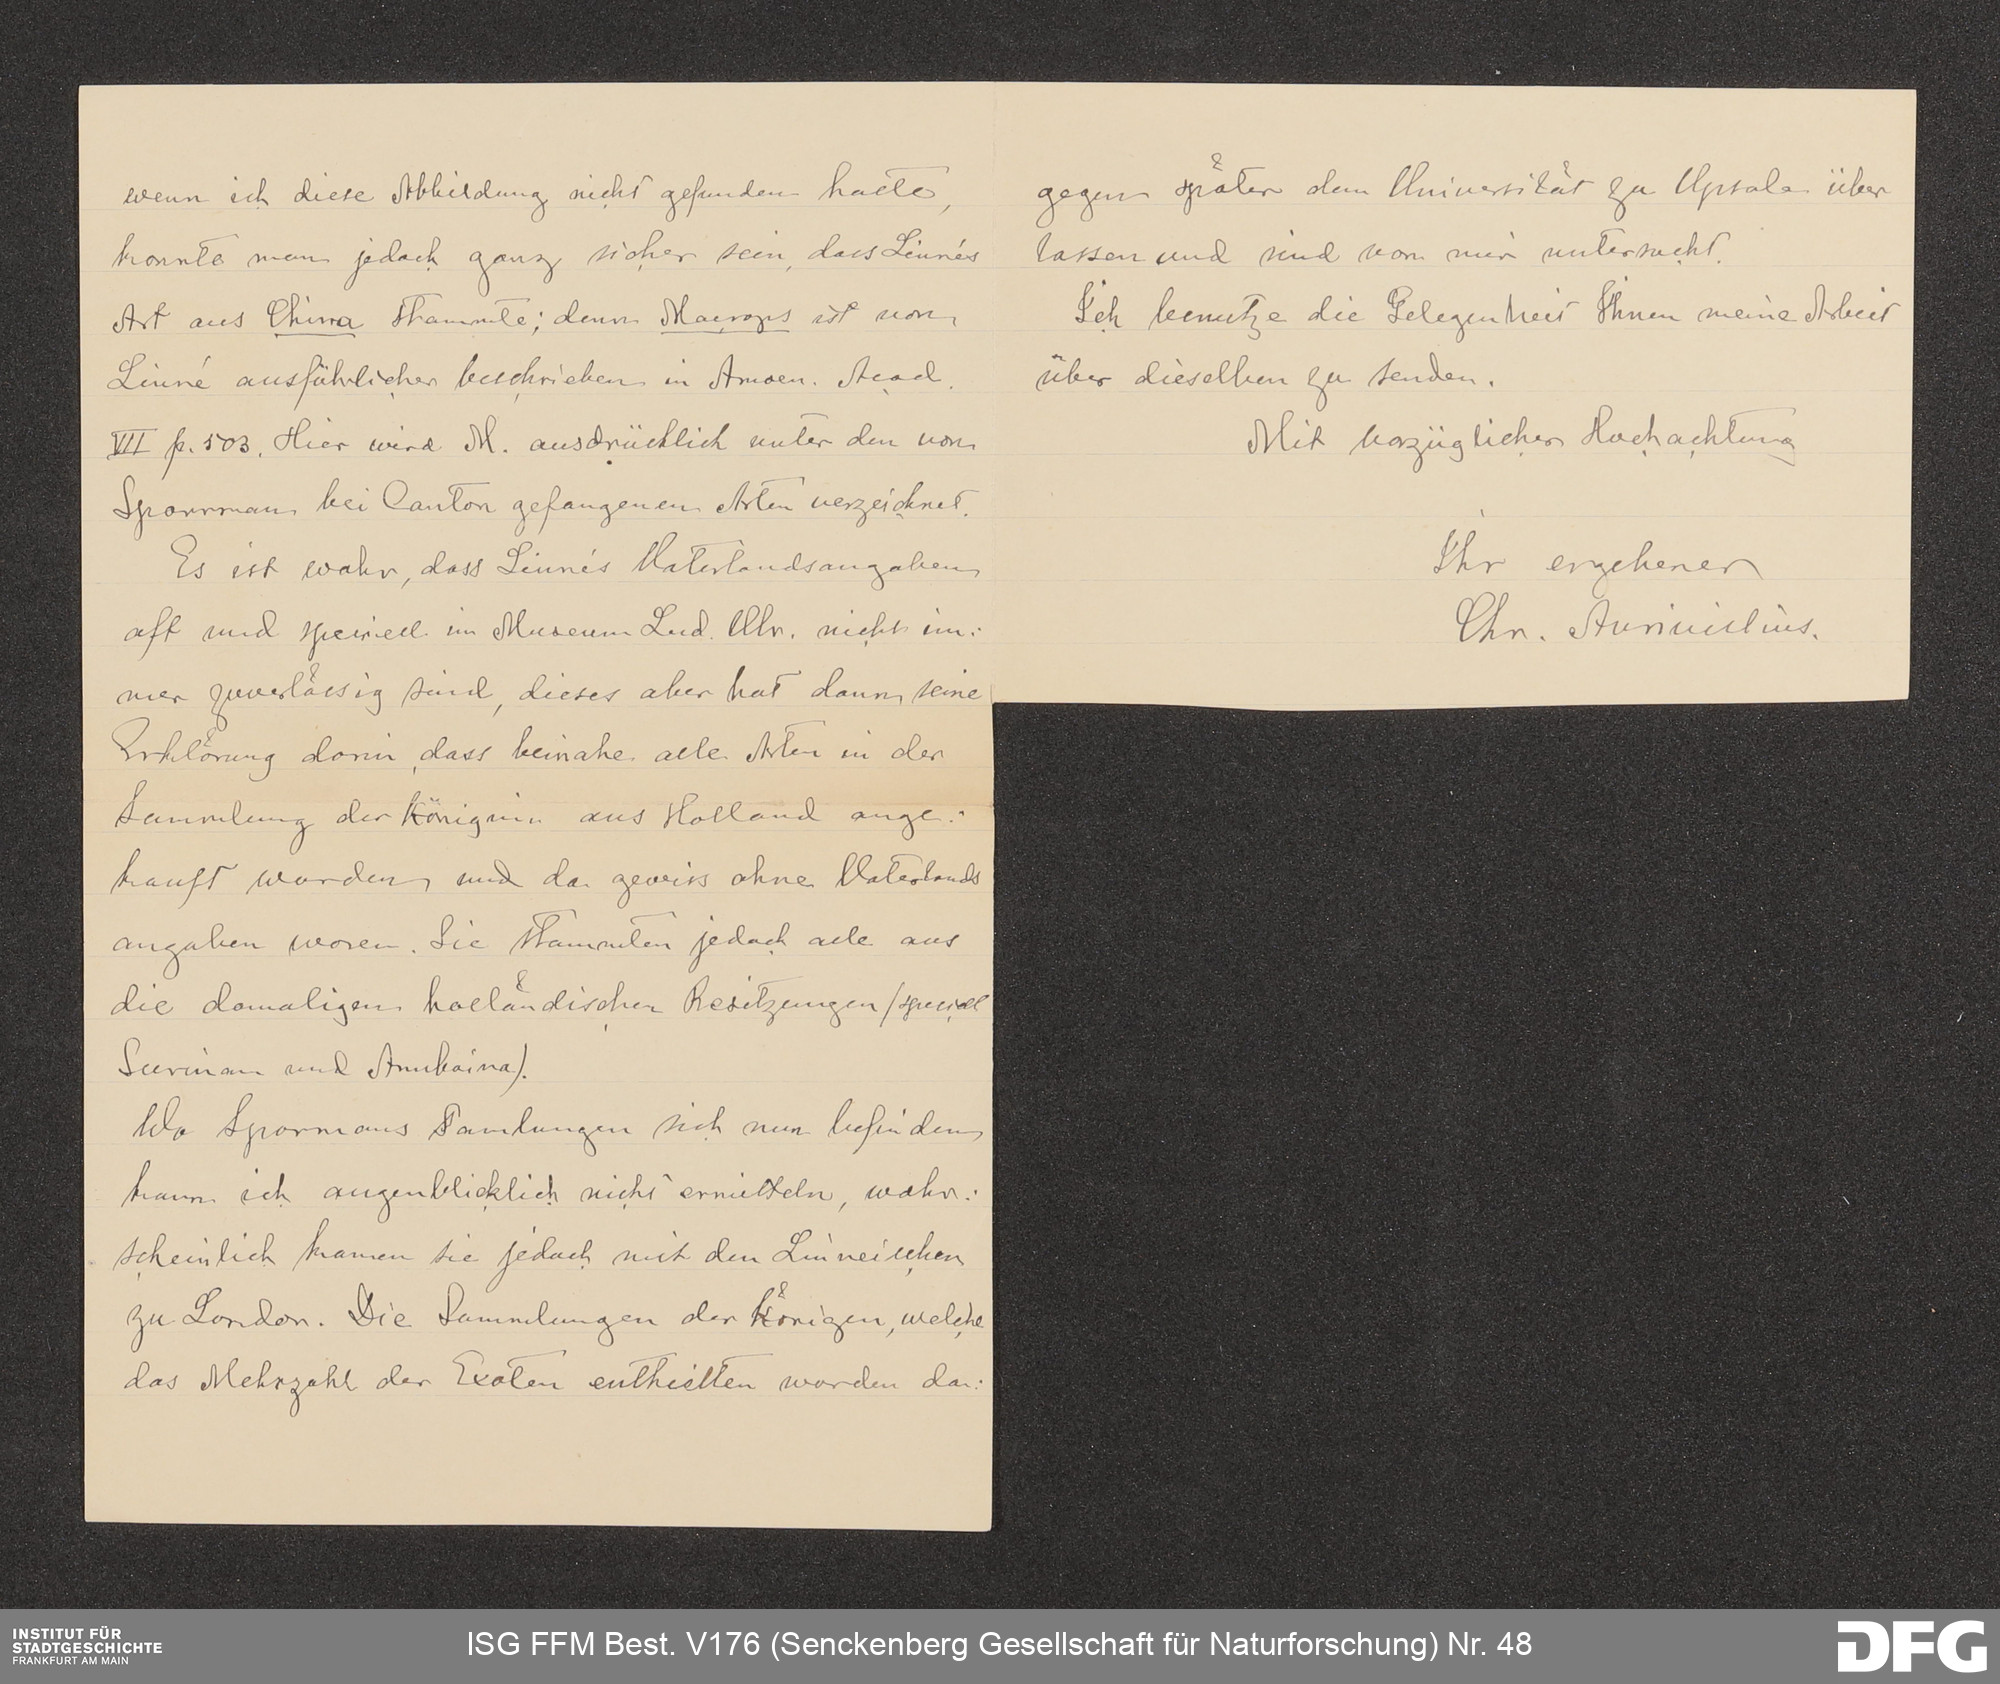 wenn ich diese Abbildung nicht gefunden hatte,
konnte man jedoch ganz sicher sein, dass Linnés
Art aus China stammte; denn Maerops ist von
Linné ausführlicher beschrieben in Amoen. Acad.
VII p. 503. Hier wird M. ausdrücklich unter den von
Sparrman bei Canton gefangenen Arten verzeichnet.
Es ist wahr, dass Linnés Vaterlandsangaben
oft und speciell im Museum Lud. Ulr. nicht im:
mer zuverlässig sind, dieses aber hat dann seine
Erklärung darin, dass beinahe alle Arten in der
Sammlung der Königinn aus Holland ange:
kauft wurden und da gewiss ohne Vaterlands
angaben waren. Sie stammten jedoch alle aus
die damaligen holländischen Besitzungen (speciell
Surinam und Amboina).
Wo Sparrmans Samlungen sich nun befinden
kann ich augenblicklich nicht ermitteln, wahr:
scheinlich kamen sie jedoch mit den Linneischen
zu London. Die Sammlungen der Königen, welche
das Mehrzahl der Exoten enthielten worden da:
gegen später dem Universität zu Upsala über
lassen und sind von mir untersucht.
Ich benutze die Gelegenheit Ihnen meine Arbeit
über dieselben zu senden.
Mit vorzüglicher Hochachtung
Ihr ergebener
Chr. Aurivillius.
INSTITUT FÜR
STADTGESCHICHTE
FRANKFURT AM MAIN
ISG FFM Best. V176 (Senckenberg Gesellschaft für Naturforschung) Nr. 48
DFG